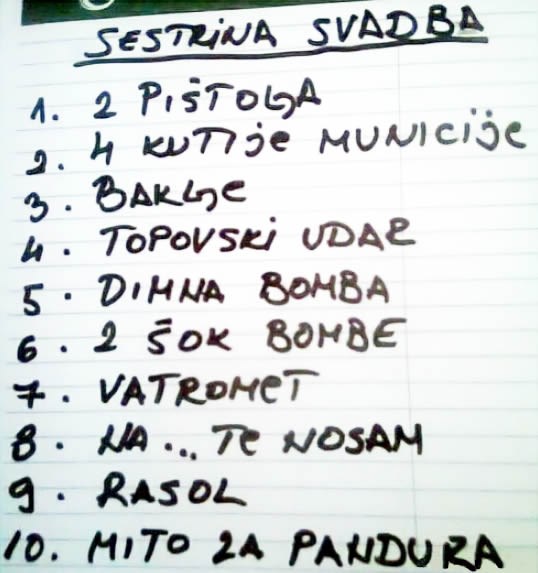 SESTRINA SVADBA
1. 2 PIŠTOLJA
2. 4 KUTIJE MUNICIJE
3. BAKLJE
4. TOPOVSKI UDAR
5. DIMNA BOMBA
6. 2 ŠOK BOMBE
7. VATROMET
8. NA... TE NOSAM
9. RASOL
10. MITO ZA PANDURA